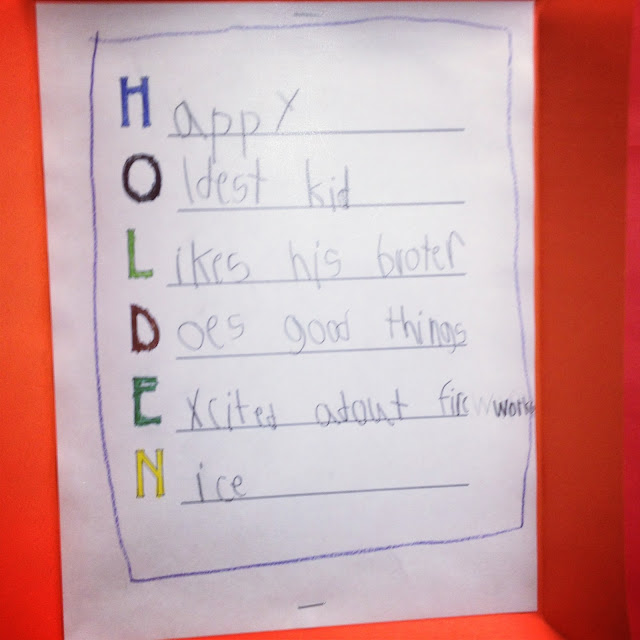 Happy
Oldest kid
Likes his broter
Does good things
Excited adout fire works
Nice